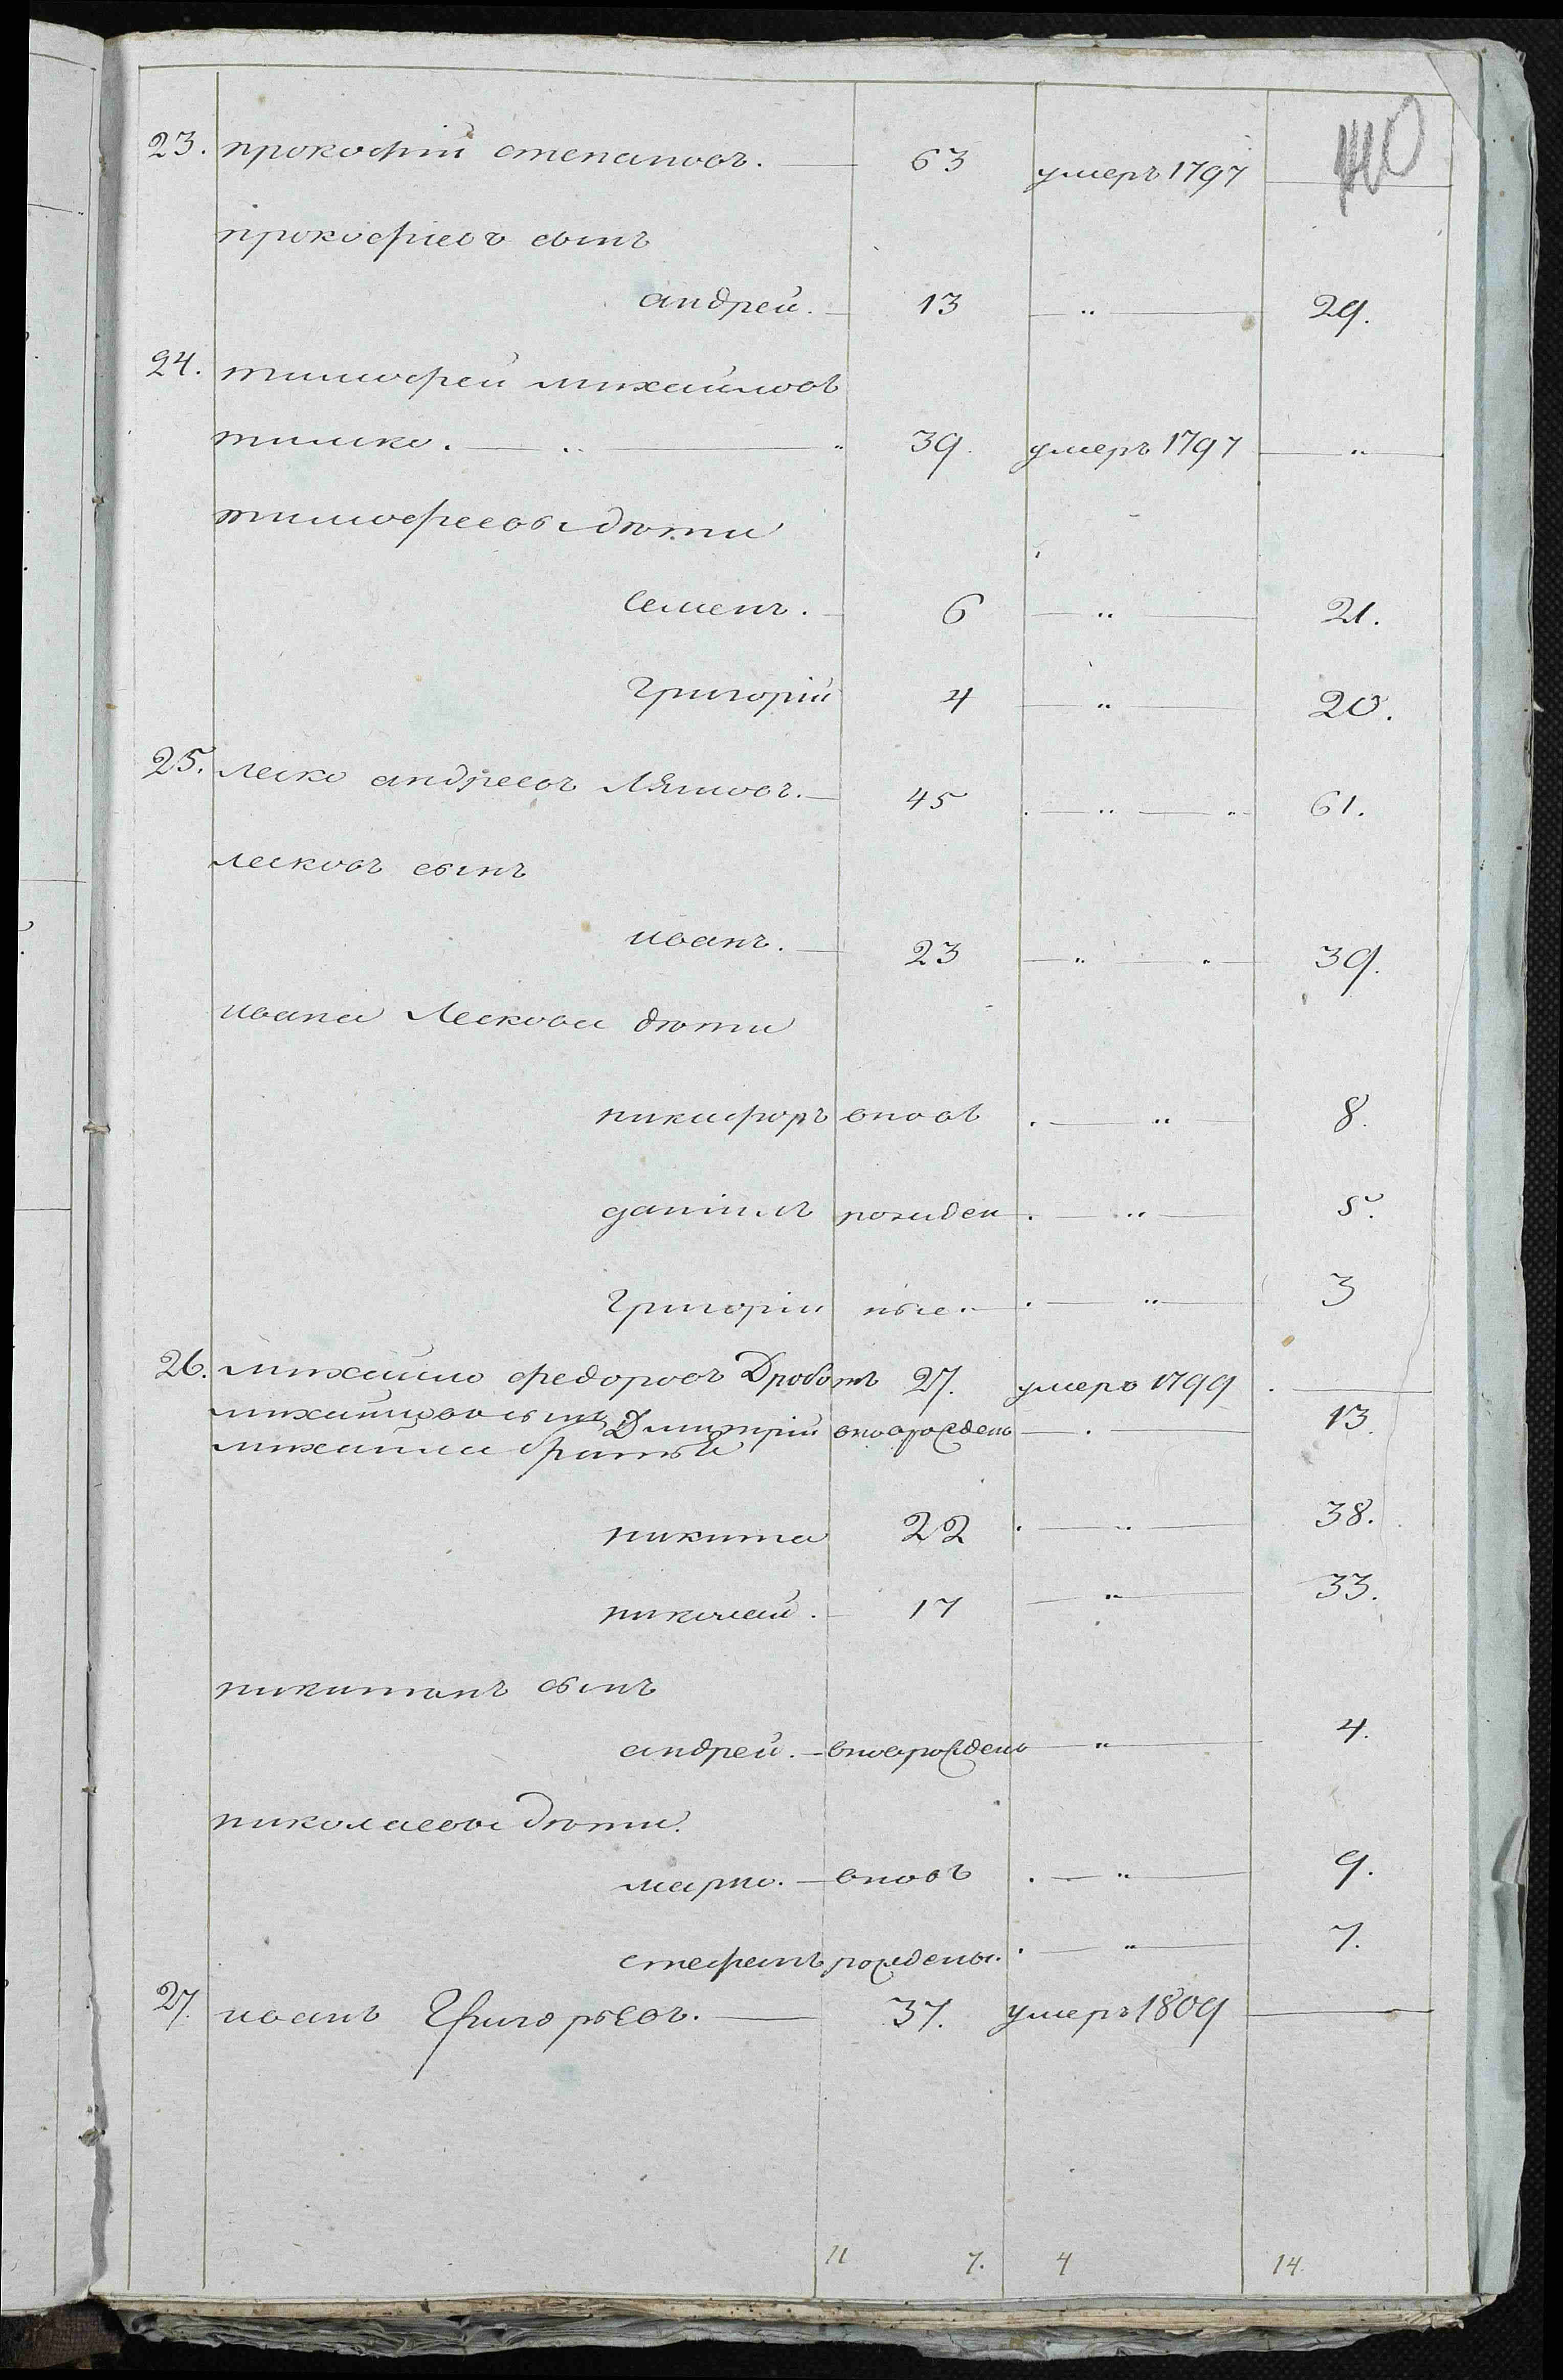 23. прокофій степановъ. 63 умеръ 1797
прокофіевъ сынъ
андрей. 13 29.
24. тимофей михайловъ
тимко. 39. умеръ 1797
тимофеевы дѣти
Семенъ. 6 21.
Григорій 4 20.
25. леско андреевъ 45 61.
лесковъ сынъ
иванъ. 23 39.
ивана Лескова дѣти
никифоръ вновъ 8.
даніилъ рожден 5.
Григорій ные. 3
26. михайло федоровъ Дроботъ 27. умеръ 1799
михайловъ сынъ Дмитрій вновърожденъ 13.
михайла братья
никита 22 38.
николай. 17 33.
никитинъ сынъ
андрей. вновърожденъ 4.
николаевы дѣти.
марко. вновъ 9.
стефанъ рождены. 7.
27. иванъ Григорьевъ. 37. умеръ 1809
11 7. 4 14.